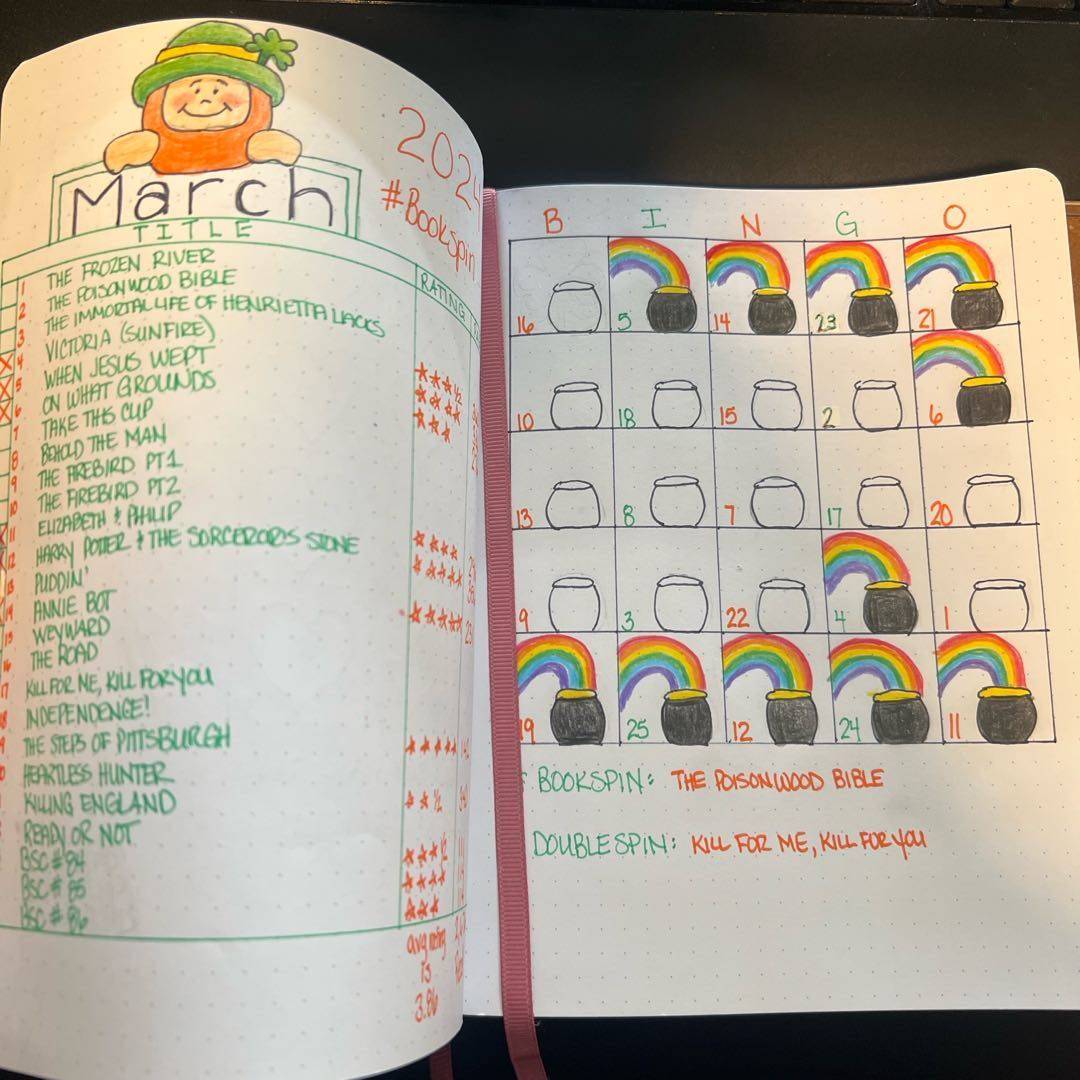 March
2024
#Bookspin
TITLE
RATING
1 THE FROZEN RIVER
2 THE POISONWOOD BIBLE
3 THE IMMORTAL LIFE OF HENRIETTA LACKS
4 VICTORIA (SUNFIRE) ★★★½
5 WHEN JESUS WEPT ★★★★
6 ON WHAT GROUNDS ★★★
7 TAKE THIS CUP
8 BEHOLD THE MAN
9 THE FIREBIRD PT 1
10 THE FIREBIRD PT 2
11 ELIZABETH & PHILIP ★★★★
12 HARRY POTTER & THE SORCEROR'S STONE ★★★★★
13 PUDDIN'
14 ANNIE BOT ★★★★★
15 WEYWARD
THE ROAD
KILL FOR ME, KILL FOR YOU
INDEPENDENCE!
THE STEPS OF PITTSBURGH ★★★★★
HEARTLESS HUNTER
KILLING ENGLAND ★★½
READY OR NOT
BSC #84 ★★★½
BSC # 85 ★★★★
BSC # 86 ★★★
avg rating
is
3.86
B I N G O
16 5 14 23 21
10 18 15 2 6
13 8 7 17 20
9 3 22 4 1
19 25 12 24 11
BOOKSPIN: THE POISONWOOD BIBLE
DOUBLESPIN: KILL FOR ME, KILL FOR YOU